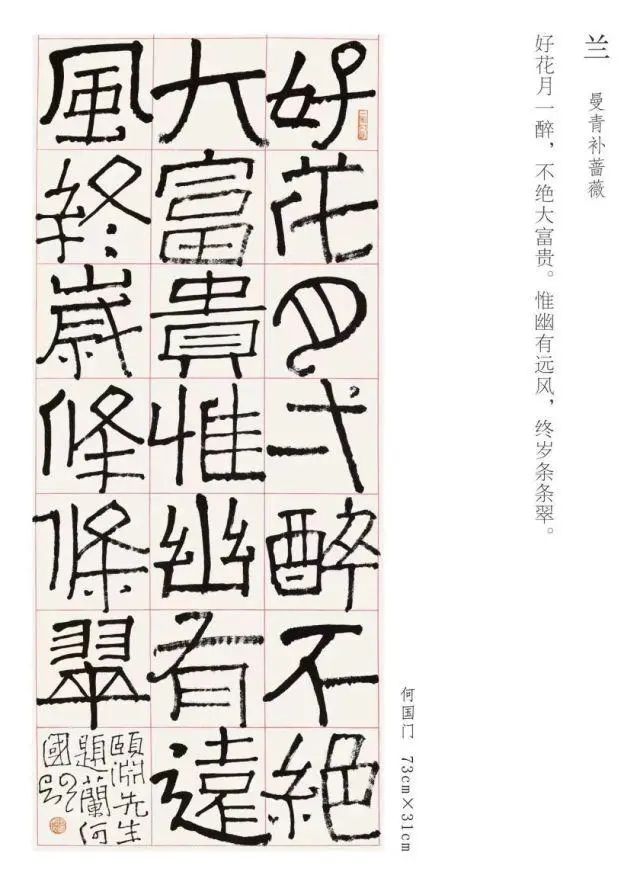 兰 曼青补蔷薇
好花月一醉，不绝大富贵。惟幽有远风，终岁条条翠。
何国门 73cm×31cm
好花月弌醉不絕
大富貴惟幽有遠
風終歲條條翠
頤淵先生
題蘭何
國門